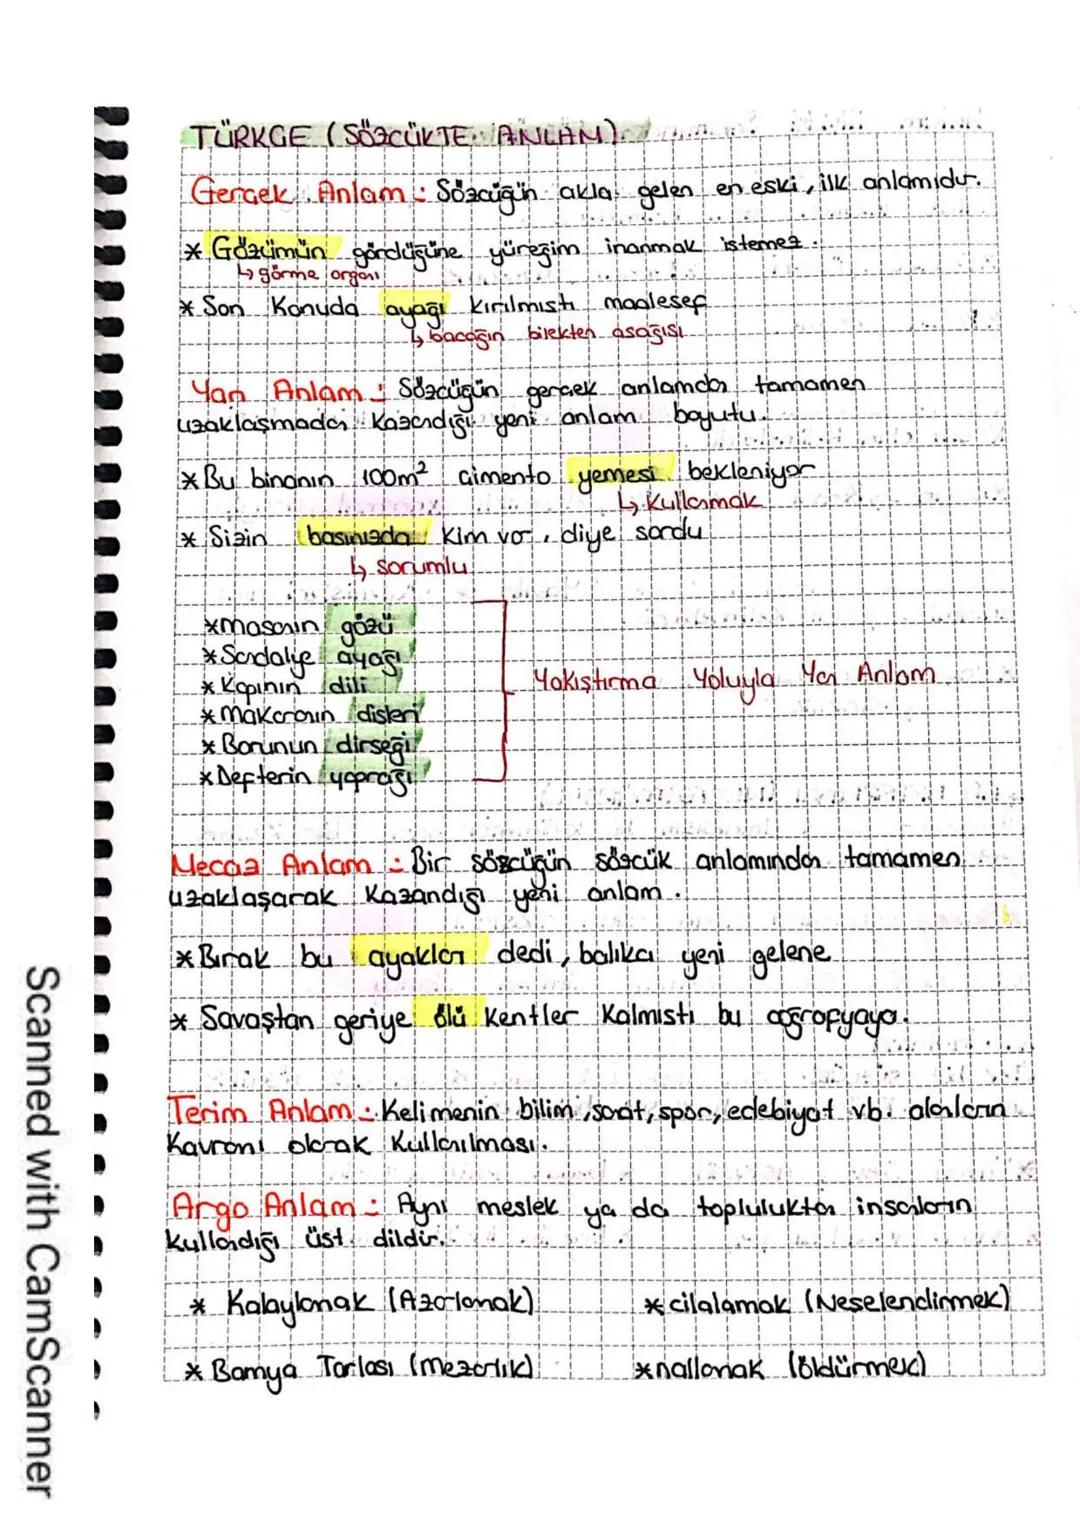 TÜRKGE (SÖZCÜKTE ANLAM)
Gerçek Anlam : Sözcüğün akla gelen en eski, ilk anlamıdır.
* Gözümün gördüğüne yüreğim inanmak istemez.
↳ görme organı
* Son Konuda ayağı kırılmıştı maalesef
↳ bacağın bilekten aşağısı
Yan Anlam : Sözcüğün gerçek anlamdan tamamen
uzaklaşmadan Kazandığı yeni anlam boyutu.
* Bu binanın 100m² çimento yemesi bekleniyor
↳ Kullanmak
* Sizin başınızda kim var, diye sordu
↳ sorumlu
* masanın gözü
* Sandalye ayağı
* Kapının dili
* makaranın dişleri
* Borunun dirseği
* Defterin yaprağı
Yakıştırma Yoluyla Yan Anlam
Mecaz Anlam : Bir sözcüğün sözcük anlamından tamamen
uzaklaşarak Kazandığı yeni anlam.
* Bırak bu ayakları dedi, balıkçı yeni gelene
* Savaştan geriye ölü Kentler Kalmıştı bu coğrafyaya.
Terim Anlam : Kelimenin bilim, sanat, spor, edebiyat vb. alanların
Kavramı olarak Kullanılması.
Argo Anlam : Aynı meslek ya da topluluktan insanların
kullandığı üst dildir.
* Kalaylamak (Azarlamak)
* cilalamak (Neşelendirmek)
* Bamya Tarlası (mezarlık)
* nallamak (öldürmek)
Scanned with CamScanner